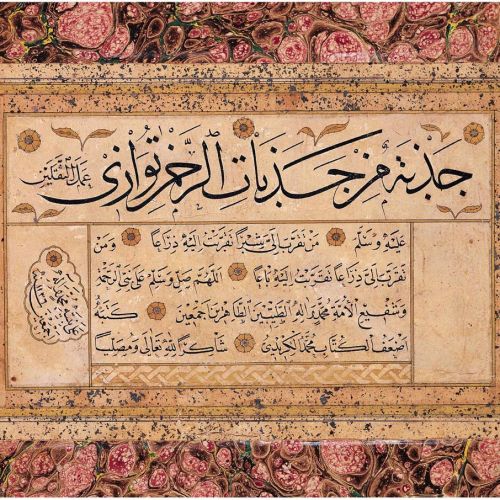 جذبة من جذبات الرحمن توازى عمل الثقلين
عليه وسلم من تقرب الى شبرا تقربت اليه ذراعا ومن
تقرب الى ذراعا تقربت اليه باعا اللهم صل وسلم على نبى الرحمة
وشفيع الأمة محمد واله الطيبين الطاهرين اجمعين كتبه
اضعف الكتاب محمد شاكرا لله تعالى ومصليا